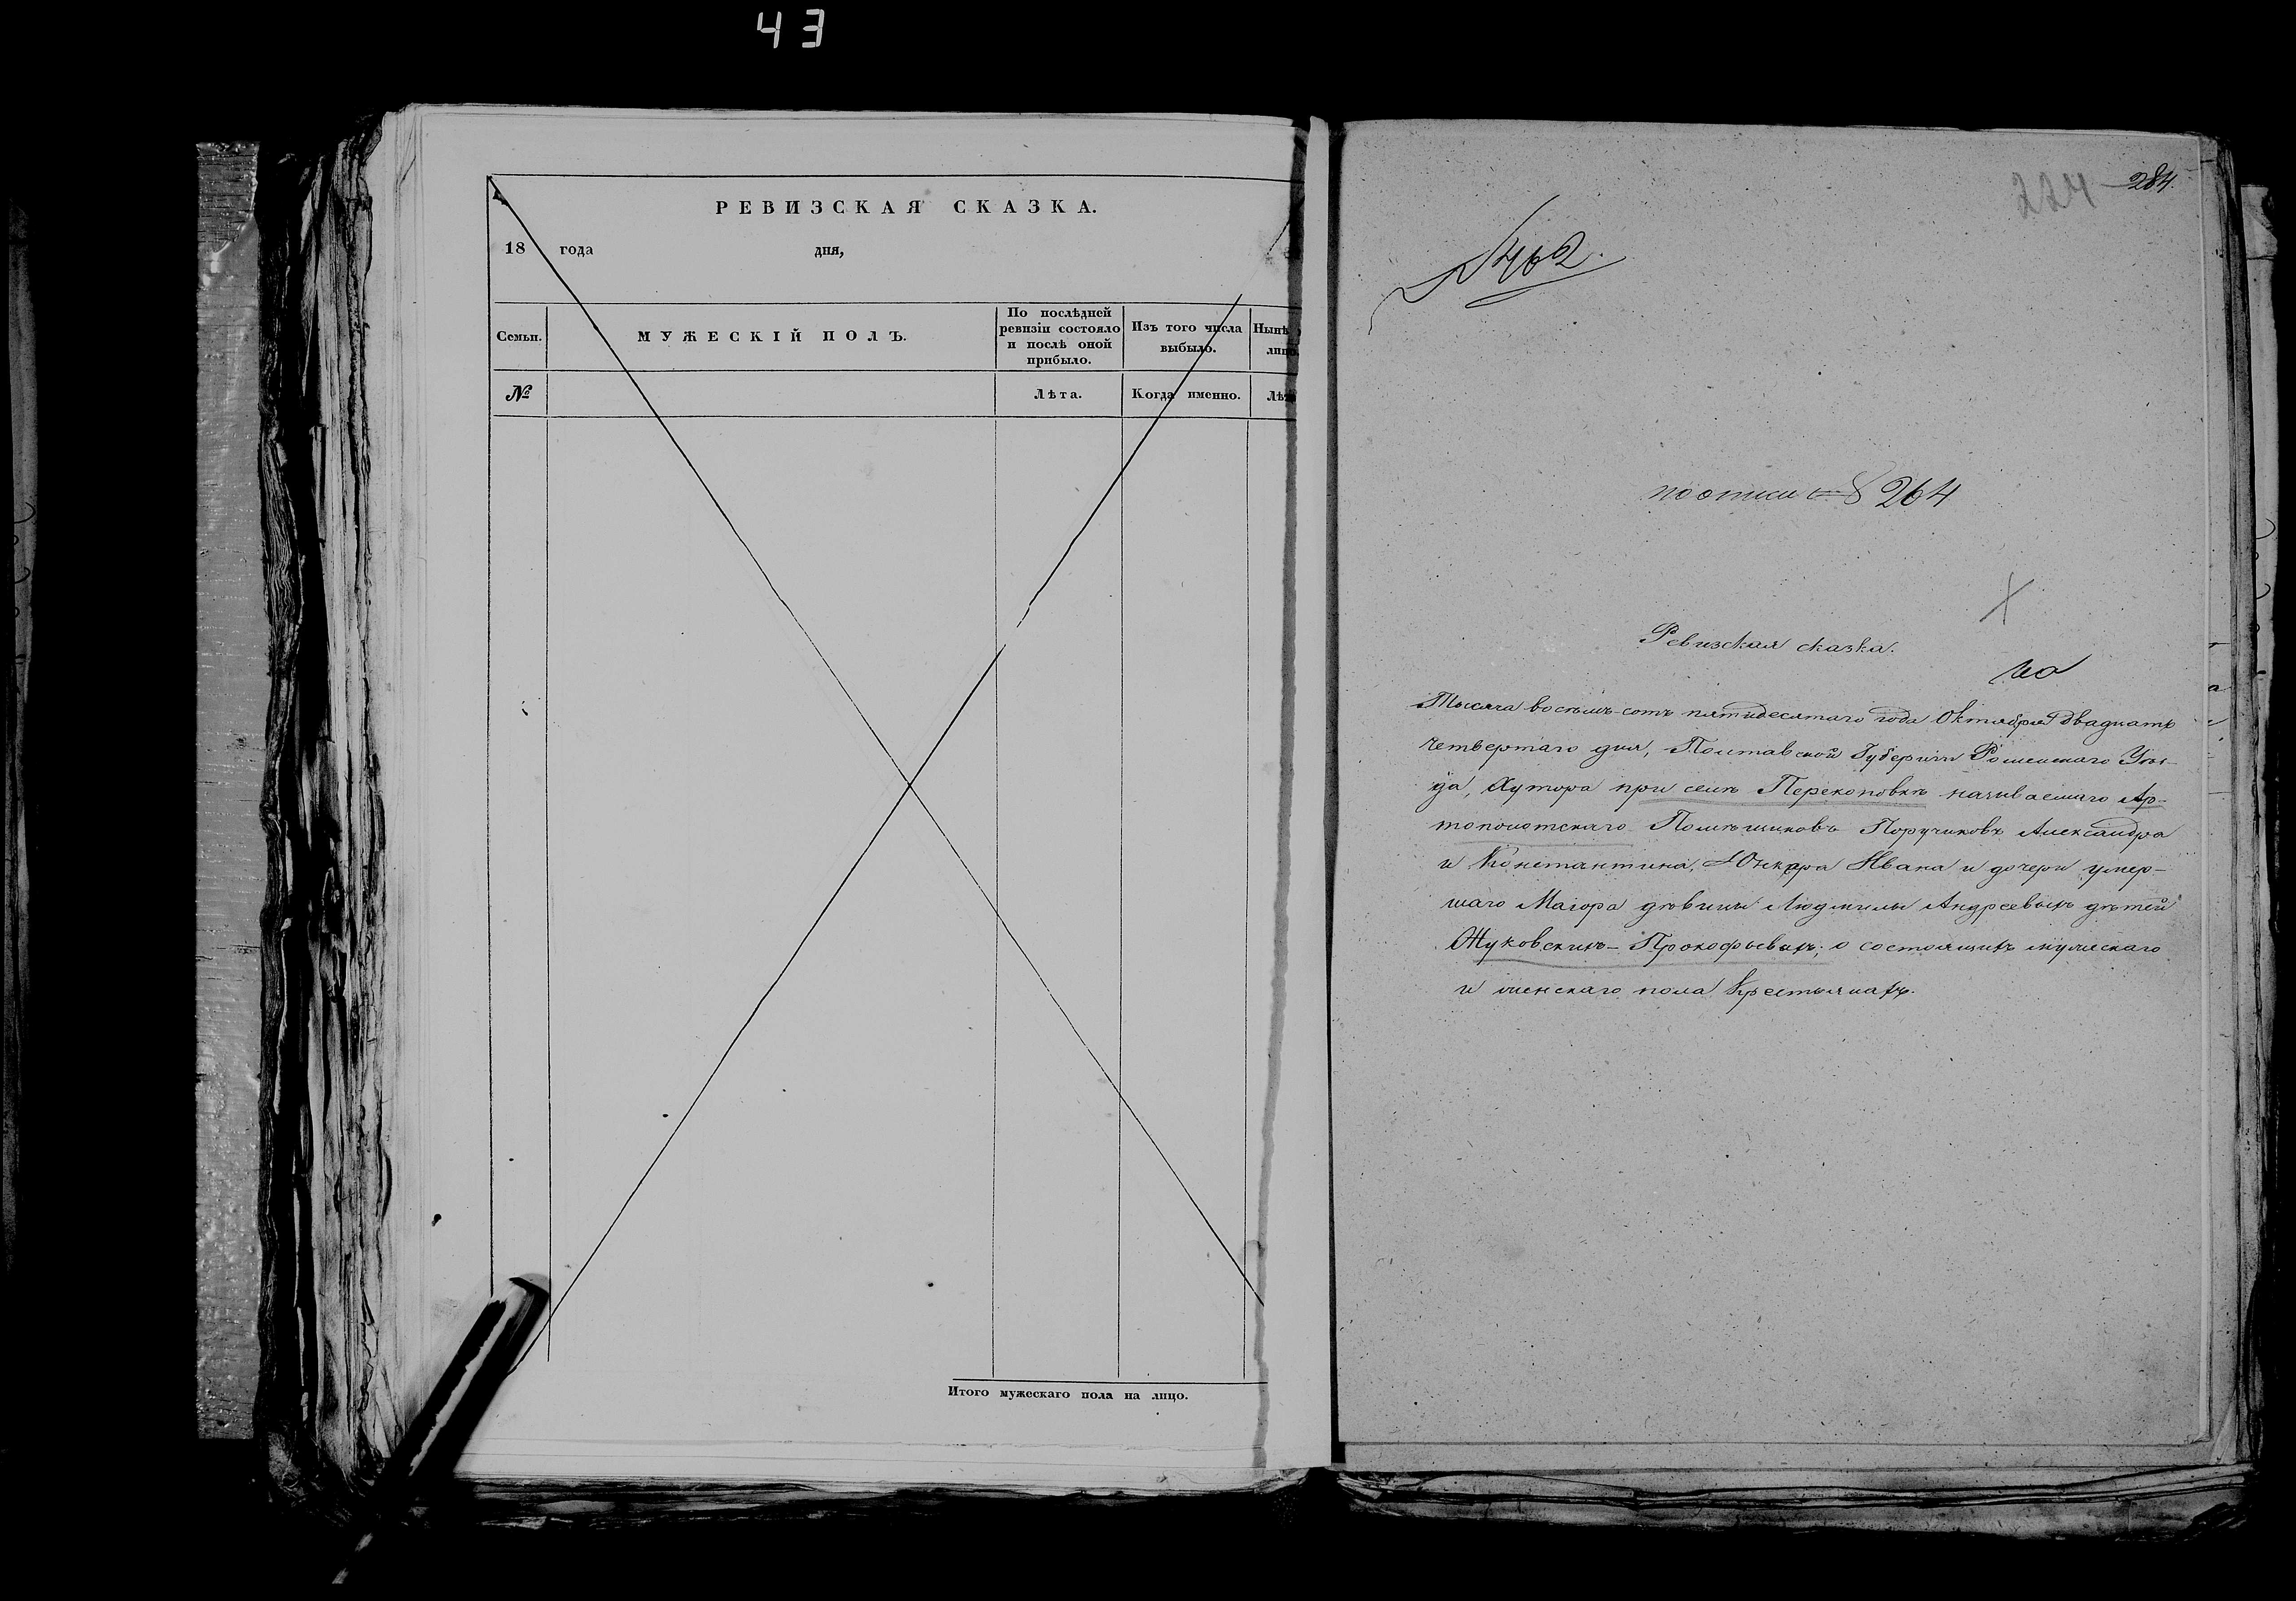 43
РЕВИЗСКАЯ СКАЗКА.
18 года дня,
Семьи.
МУЖЕСКІЙ ПОЛЪ.
По послѣдней ревизіи состояло и послѣ оной прибыло.
Изъ того числа выбыло.
Нынѣ
лицо
№
Лѣта.
Когда именно.
Лѣ
Итого мужескаго пола на лицо.
224 284.
№ 462.
по описи № 264
Ревизская сказка.
на
Тысяча восемь-сотъ пятидесятаго года Октября двадцать
четвертаго дня, Полтавской Губерніи Роменскаго Уѣз-
да, Хутора при селѣ Перекоповкѣ называемаго Ар-
тополотскаго Помѣщиковъ Поручиковъ Александра
и Константина, Юнкера Ивана и дочери умер-
шаго Маіора дѣвицы Людмилы Андреевыхъ дѣтей
Жуковскихъ-Прокофьевыхъ; о состоящихъ мужескаго
и женскаго пола Крестьянахъ.